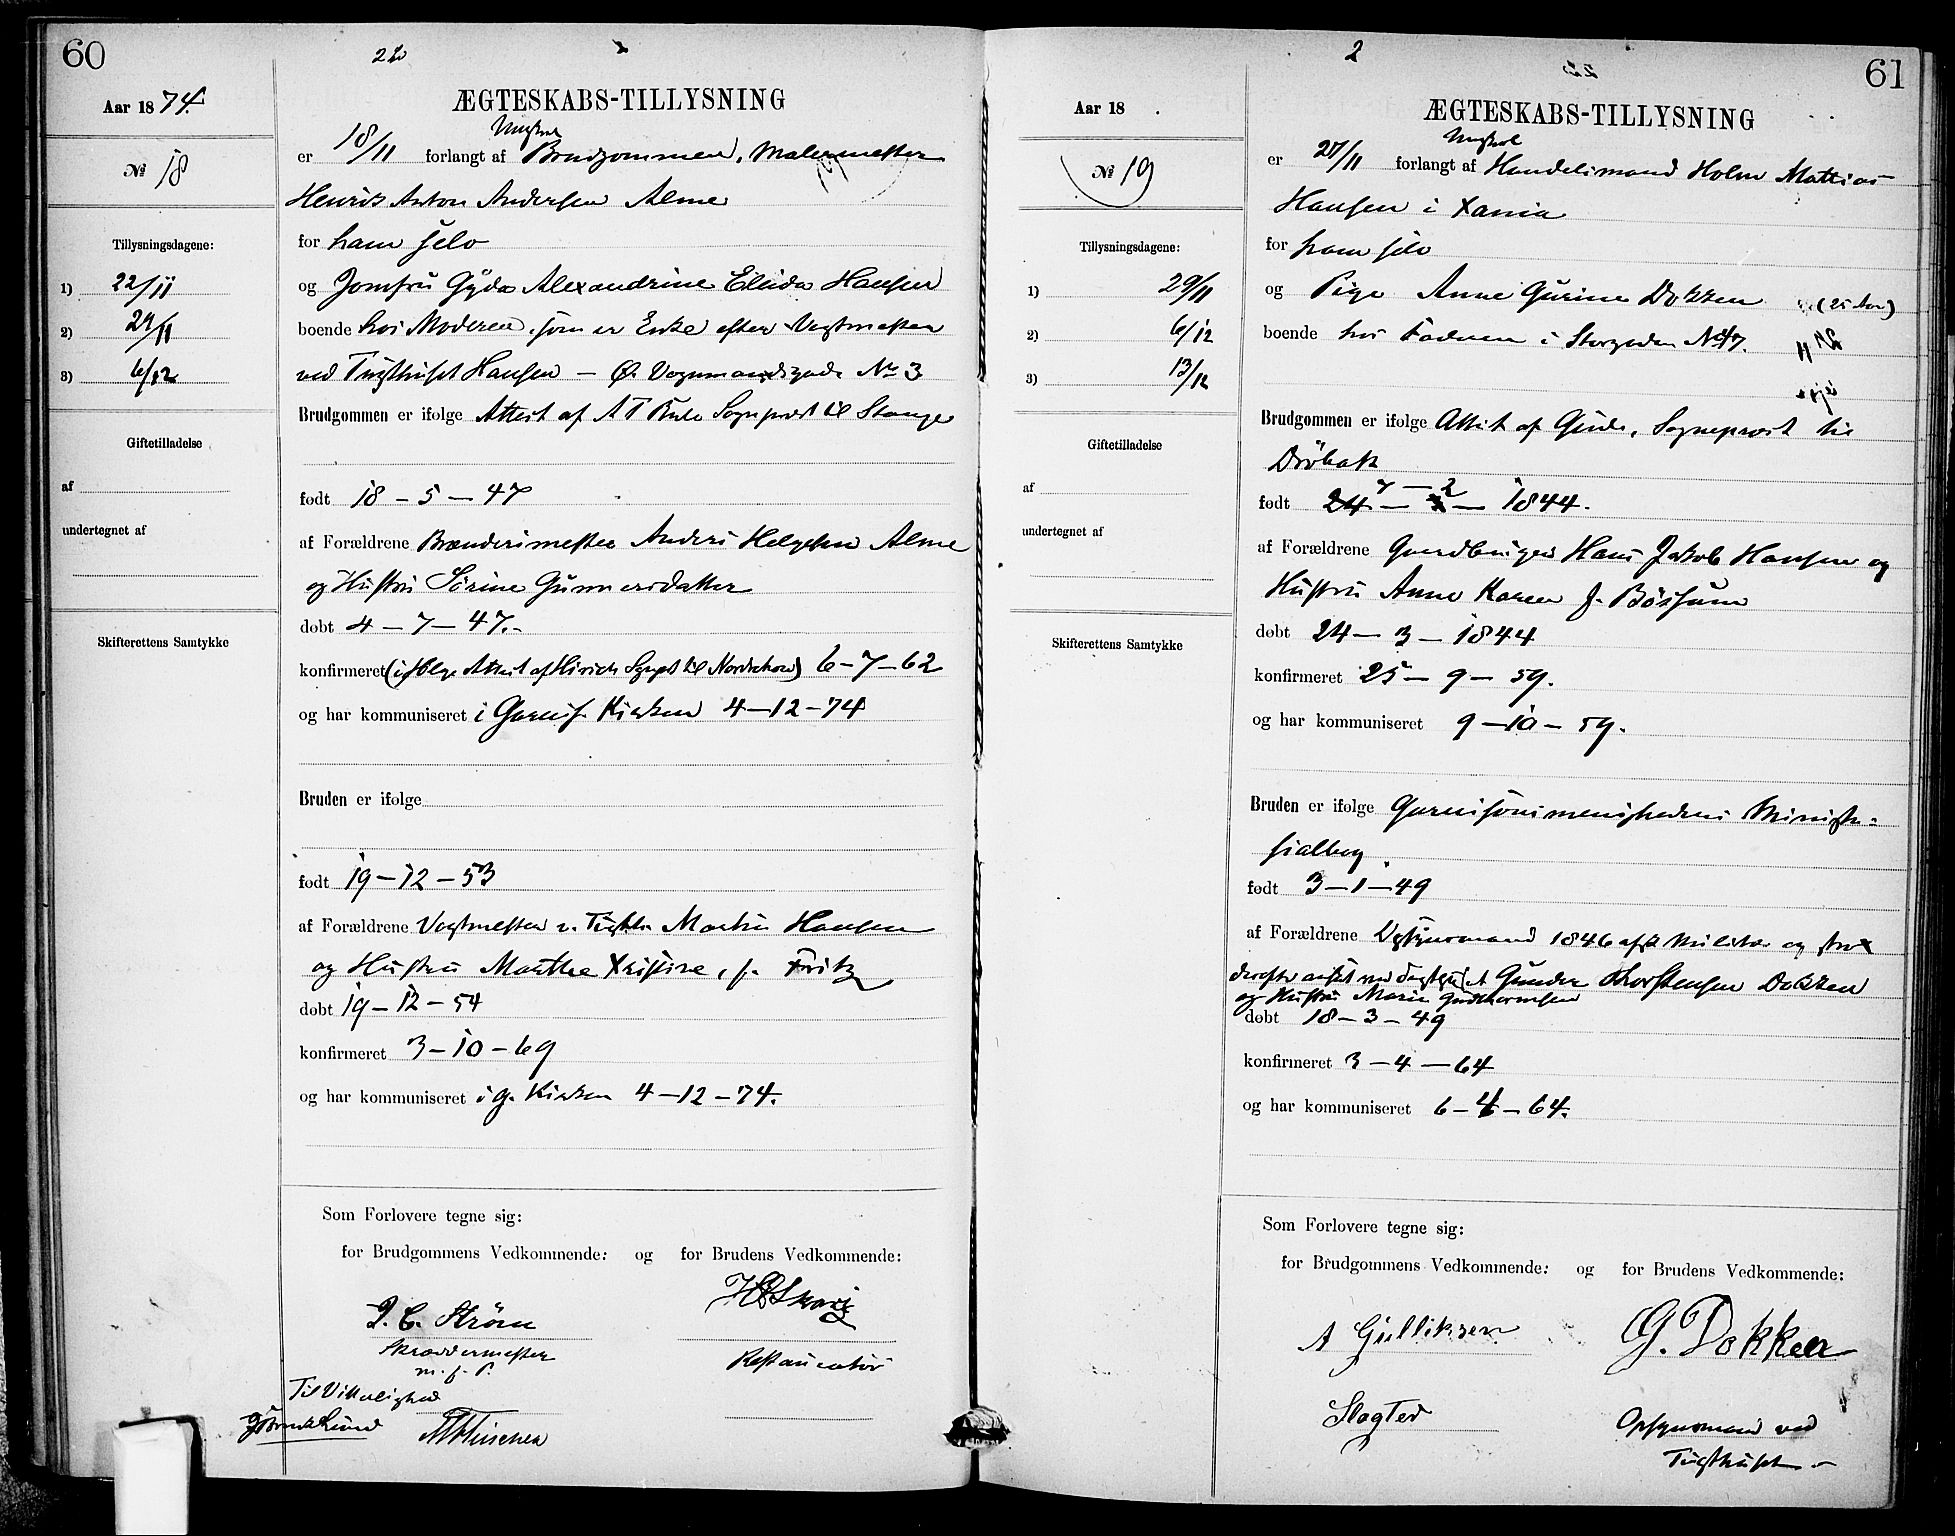 60
22
Aar 1874.
ÆGTESKABS-TILLYSNING
№ 18
Ungkarl
er 18/11 forlangt af Brudgommen, Malermester
Henrik Anton Andersen Alme
Tillysningsdagene:
for ham selv
1) 22/11
og Jomfru Gyda Alexandrine Elida Hansen
2) 29/11
boende hos Moderen, som er Enke efter Vagtmester
3) 6/12
ved Tugthuset Hansen — Ø. Vognmandsgade No 3
Giftetilladelse
Brudgommen er ifølge Attest af Sognepræst til Stange
af
født 18 - 5 - 47
undertegnet af
af Forældrene Brænderimester Anders Helgesen Alme
og Hustru Sörine Gunnersdatter
døbt 4 - 7 - 47.
Skifterettens Samtykke
konfirmeret (ifölge Attest af Sgnpst til Nordrehov) 6-7-62
og har kommuniseret i Garnis. Kirken 4-12-74
Bruden er ifølge
født 19-12-53
af Forældrene Vagtmester v. Tugth. Martin Hansen
og Hustru Marthe Xristine, f. Fritz
døbt 19-12-54
konfirmeret 3-10-69
og har kommuniseret i G. Kirken 4-12-74.
Som Forlovere tegne sig:
for Brudgommens Vedkommende: og for Brudens Vedkommende:
J. C. Ström
Skræddermester
m. f. P.
Restauratör
Til Vitterlighed
61
2
Aar 18 .
ÆGTESKABS-TILLYSNING
№ 19
Ungkarl
er 27/11 forlangt af Handelsmand Holm Mathias
Hansen i Xania
Tillysningsdagene:
for ham selv
1) 29/11
og Pige Anne Gurine Dokken (25 Aar)
2) 6/12
boende hos Faderen i Storgaden No 47.
3) 13/12
Giftetilladelse
Brudgommen er ifølge Attest af Gude, Sognepræst til
Dröbak
af
7 — 2
født 24 — 3 — 1844.
undertegnet af
af Forældrene Gaardbruger Hans Jakob Hansen og
Hustru Anne Karen f. Bössum
døbt 24 - 3 - 1844
Skifterettens Samtykke
konfirmeret 25 - 9 - 59.
og har kommuniseret 9 - 10 - 59.
Bruden er ifølge Garnisonsmenighedens Ministe-
rialbog.
født 3-1-49
af Forældrene Opsynsmand 1846 afsk Militær og
derefter ansat ved Tugthuset Gunder Thorstensen Dokken
og Hustru Marie Gudthormsen
døbt 18-3-49
konfirmeret 3-4-64
og har kommuniseret 6-4-64.
Som Forlovere tegne sig:
for Brudgommens Vedkommende: og for Brudens Vedkommende:
A Gulliksen G. Dokken
Slagter Opsynsmand ved
Tugthuset